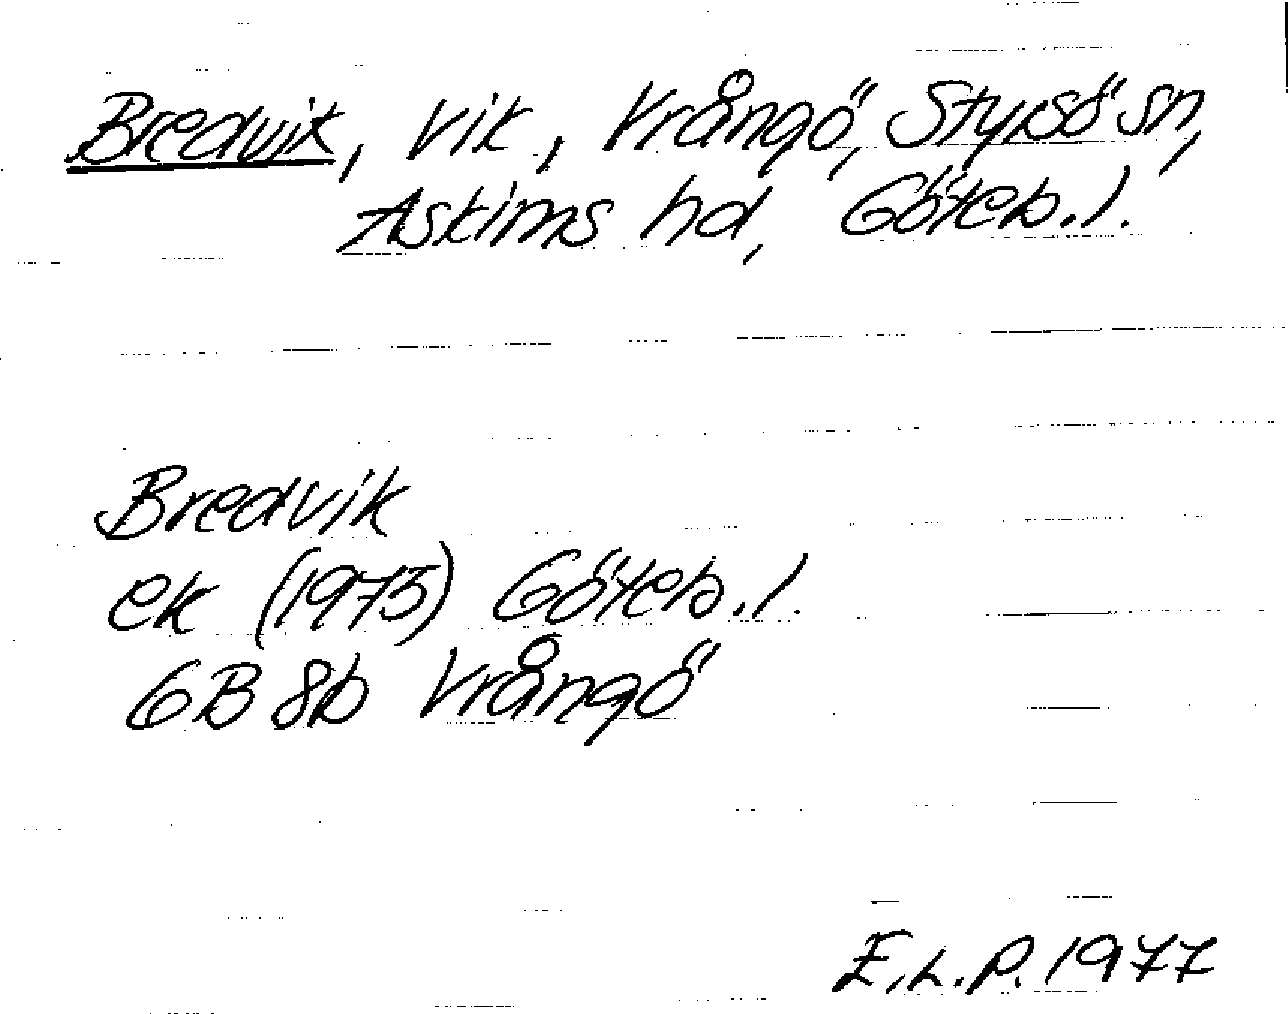 Bredvik, vik, Vrångö, Styrsö sn,
Askims hd, Göteb. l.
Bredvik
ek (1975) Göteb. l.
6B 8b Vrångö
E.L.P. 1977